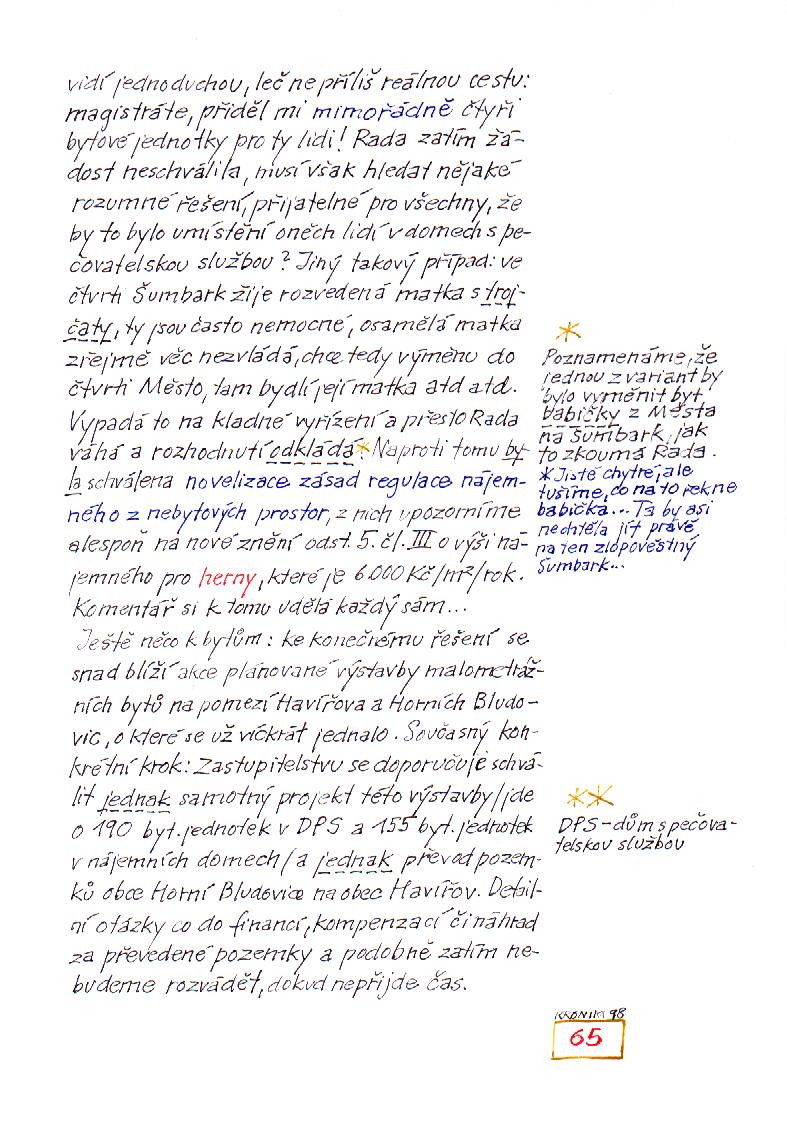 vidí jednoduchou, leč nepříliš reálnou cestu:
magistráte, příděl mi mimořádně čtyři
bytové jednotky pro ty lidi! Rada zatím žá-
dost neschválila, musí však hledat nějaké
rozumné řešení, přijatelné pro všechny, že
by to bylo umístění oněch lidí v domech s pe-
čovatelskou službou? Jiný takový případ: ve
čtvrti Šumbark žije rozvedená matka s troj-
čaty, ty jsou často nemocné, osamělá matka
zřejmě věc nezvládá, chce tedy výměnu do
čtvrti Město, tam bydlí její matka atd atd.
Vypadá to na kladné vyřízení a přesto Rada
váhá a rozhodnutí odkládá.* Naproti tomu by-
la schválena novelizace zásad regulace nájem-
ného z nebytových prostor, z nich upozorníme
alespoň na nové znění odst. 5. čl. III o výši ná-
jemného pro herny, které je 6.000 Kč/m²/rok.
Komentář si k tomu udělá každý sám...
Ještě něco k bytům: ke konečnému řešení se
snad blíží akce plánované výstavby malometráž-
ních bytů na pomezí Havířova a Horních Bludo-
vic, o které se už víckrát jednalo. Současný kon-
krétní krok: Zastupitelstvu se doporučuje schvá-
lit jednak samotný projekt této výstavby/jde
o 190 byt. jednotek v DPS a 155 byt. jednotek
v nájemních domech/a jednak převod pozem-
ků obce Horní Bludovice na obec Havířov. Detail-
ní otázky co do financí, kompenzací či náhrad
za převedené pozemky a podobně zatím ne-
budeme rozvádět, dokud nepřijde čas.
*
Poznamenáme, že
jednou z variant by
bylo vyměnit byt
babičky z Města
na Šumbark, jak
to zkoumá Rada.
* Jistě chytré, ale
tušíme, co na to řekne
babička... Ta by asi
nechtěla jít právě
na ten zlopověstný
Šumbark...
**
DPS - dům s pečova-
telskou službou
KRONIKA 98
65